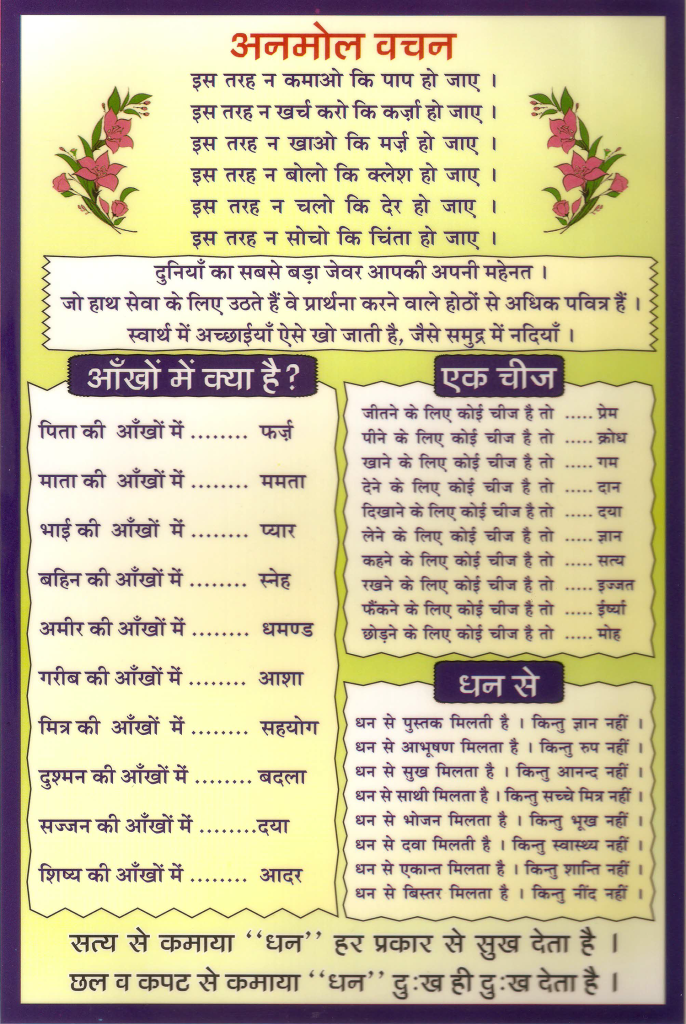 अनमोल वचन
इस तरह न कमाओ कि पाप हो जाए ।
इस तरह न खर्च करो कि कर्ज़ा हो जाए ।
इस तरह न खाओ कि मर्ज़ हो जाए ।
इस तरह न बोलो कि क्लेश हो जाए ।
इस तरह न चलो कि देर हो जाए ।
इस तरह न सोचो कि चिंता हो जाए ।
दुनियाँ का सबसे बड़ा जेवर आपकी अपनी महेनत ।
जो हाथ सेवा के लिए उठते हैं वे प्रार्थना करने वाले होठों से अधिक पवित्र हैं ।
स्वार्थ में अच्छाईयाँ ऐसे खो जाती है, जैसे समुद्र में नदियाँ ।
आँखों में क्या है?
पिता की आँखों में ........ फर्ज़
माता की आँखों में ........ ममता
भाई की आँखों में ........ प्यार
बहिन की आँखों में ........ स्नेह
अमीर की आँखों में ........ धमण्ड
गरीब की आँखों में ........ आशा
मित्र की आँखों में ........ सहयोग
दुश्मन की आँखों में ........ बदला
सज्जन की आँखों में ........दया
शिष्य की आँखों में ........ आदर
एक चीज
जीतने के लिए कोई चीज है तो ..... प्रेम
पीने के लिए कोई चीज है तो ..... क्रोध
खाने के लिए कोई चीज है तो ..... गम
देने के लिए कोई चीज है तो ..... दान
दिखाने के लिए कोई चीज है तो ..... दया
लेने के लिए कोई चीज है तो ..... ज्ञान
कहने के लिए कोई चीज है तो ..... सत्य
रखने के लिए कोई चीज है तो ..... इज्जत
फैंकने के लिए कोई चीज है तो ..... ईर्ष्या
छोड़ने के लिए कोई चीज है तो ..... मोह
धन से
धन से पुस्तक मिलती है । किन्तु ज्ञान नहीं ।
धन से आभूषण मिलता है । किन्तु रुप नहीं ।
धन से सुख मिलता है । किन्तु आनन्द नहीं ।
धन से साथी मिलता है । किन्तु सच्चे मित्र नहीं ।
धन से भोजन मिलता है । किन्तु भूख नहीं ।
धन से दवा मिलती है । किन्तु स्वास्थ्य नहीं ।
धन से एकान्त मिलता है । किन्तु शान्ति नहीं ।
धन से बिस्तर मिलता है । किन्तु नींद नहीं ।
सत्य से कमाया ‘‘धन’’ हर प्रकार से सुख देता है ।
छल व कपट से कमाया ‘‘धन’’ दुःख ही दुःख देता है ।